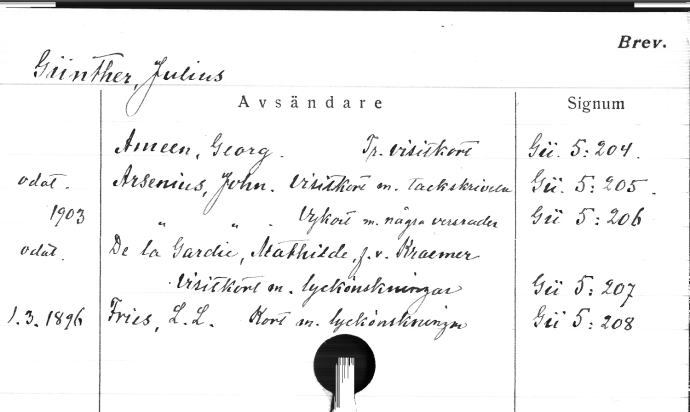 Brev.
Günther, Julius
Avsändare Signum
Ameen, Georg. Tr. visitkort Gü. 5:204.
odat. Arsenius, John. Visitkort m. tackskrivelse Gü. 5:205.
1903 " " . Vykort m. några versrader Gü 5:206
odat. De la Gardie, Mathilde, f. v. Kraemer
Visitkort m. lyckönskningar Gü 5:207
1.3.1896 Fries, L. L. Kort m. lyckönskningar Gü 5:208